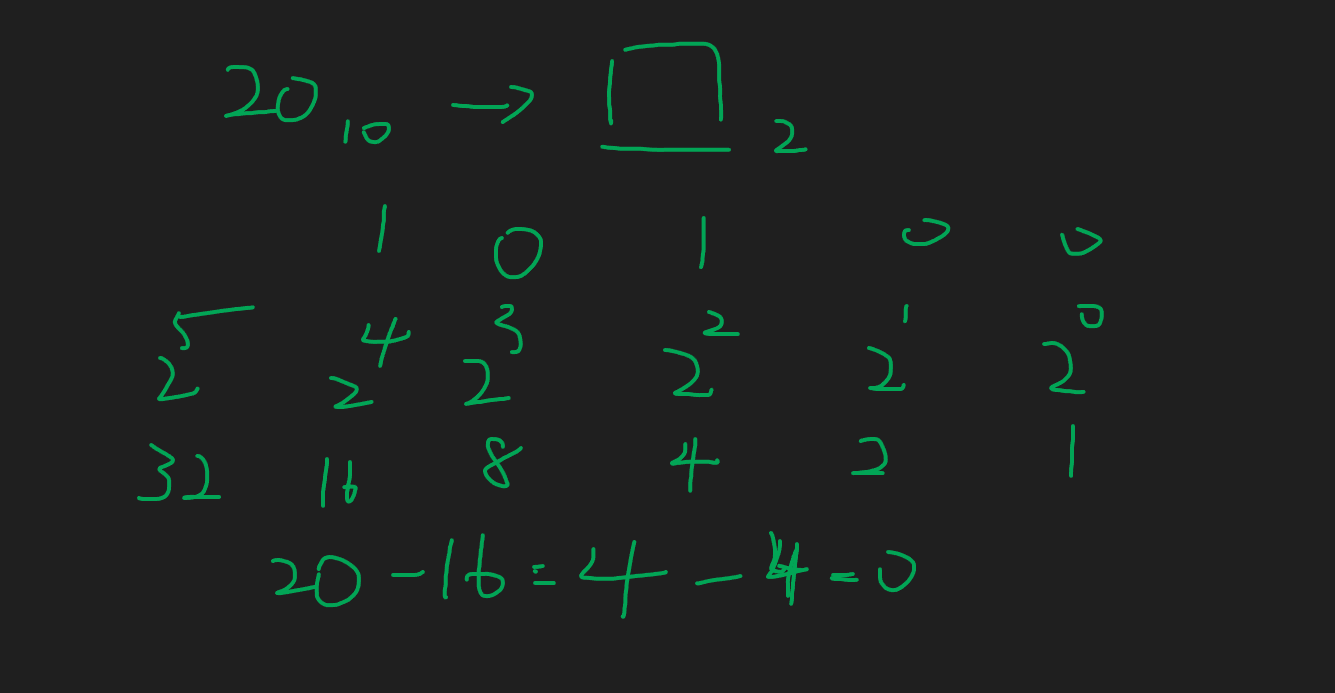 20₁₀ → □₂
1 0 1 0 0
2⁵ 2⁴ 2³ 2² 2¹ 2⁰
32 16 8 4 2 1
20 - 16 = 4 - 4 = 0